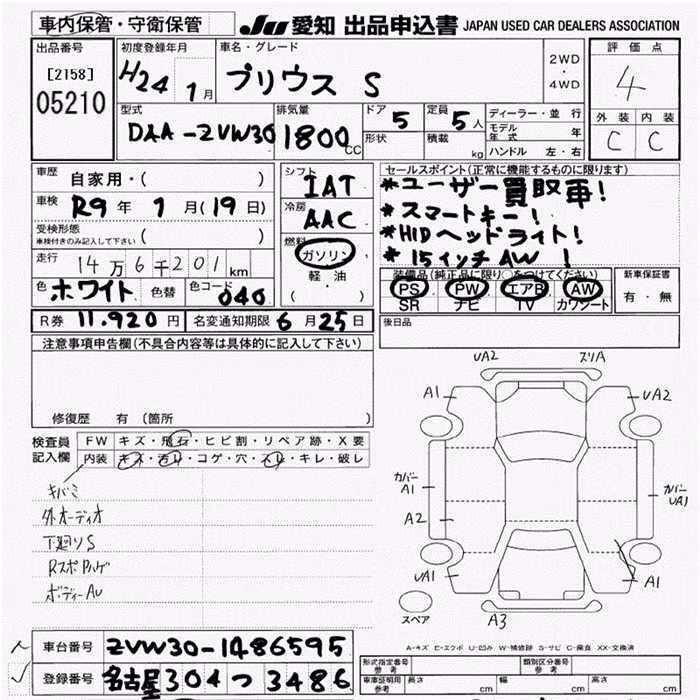 車内保管・守衛保管
JU 愛知 出品申込書 JAPAN USED CAR DEALERS ASSOCIATION
出品番号 初度登録年月 車名・グレード 評価点
[2158]
05210 H24 1月 プリウス S 2WD・4WD 4
型式 排気量 ドア 5 定員 5人 ディーラー・並行 外装 内装
DAA-ZVW30 1800CC 形状 積載 kg モデル年式 年 C C
ハンドル 左・右
車歴 自家用・( ) シフト IAT セールスポイント(正常に機能するものに限ります)
車検 R9年 1月(19日) 冷房 AAC *ユーザー買取車!
受検形態 ( ) *スマートキー!
車検付きのみ記入して下さい 燃料 ガソリン *HIDヘッドライト!
走行 14万6千201km 軽・油 *15インチAW !
色 ホワイト 色替 色コード 040 ( ) 装備品(純正品に限り○をつけてください) 新車保証書
PS PW エアB AW 有・無
SR ナビ TV カワシート
R券 11.920円 名変通知期限 6月25日 後日品
注意事項申告欄(不具合内容等は具体的に記入して下さい)
修復歴 有 (箇所 )
検査員 FW キズ・飛石・ヒビ割・リペア跡・X要
記入欄 内装 キズ・汚れ・コゲ・穴・スレ・キレ・破レ
キバミ
外オーディオ
下廻りS
ボディーAU
UA2 スリA
A1 UA2
カバー カバー
A1 UA1
A2
UA1 A1
スペア A3
A-キズ E-エクボ U-凹み W-補修跡 S-サビ C-腐食 XX-交換済
車台番号 ZVW30-1486595
登録番号 名古屋 304 つ 3486
形式指定番号 参考 類別区分番号 参考
車庫証明用 参考 長さ cm 幅 cm 高さ cm